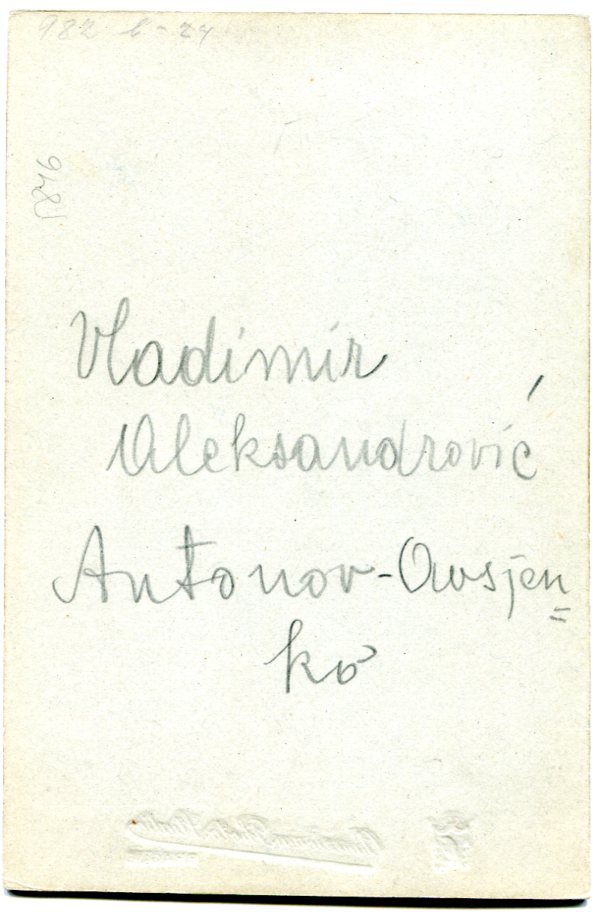 982 b-24
Vladimir
Aleksandrović
Antonov-Ovsjen=
ko